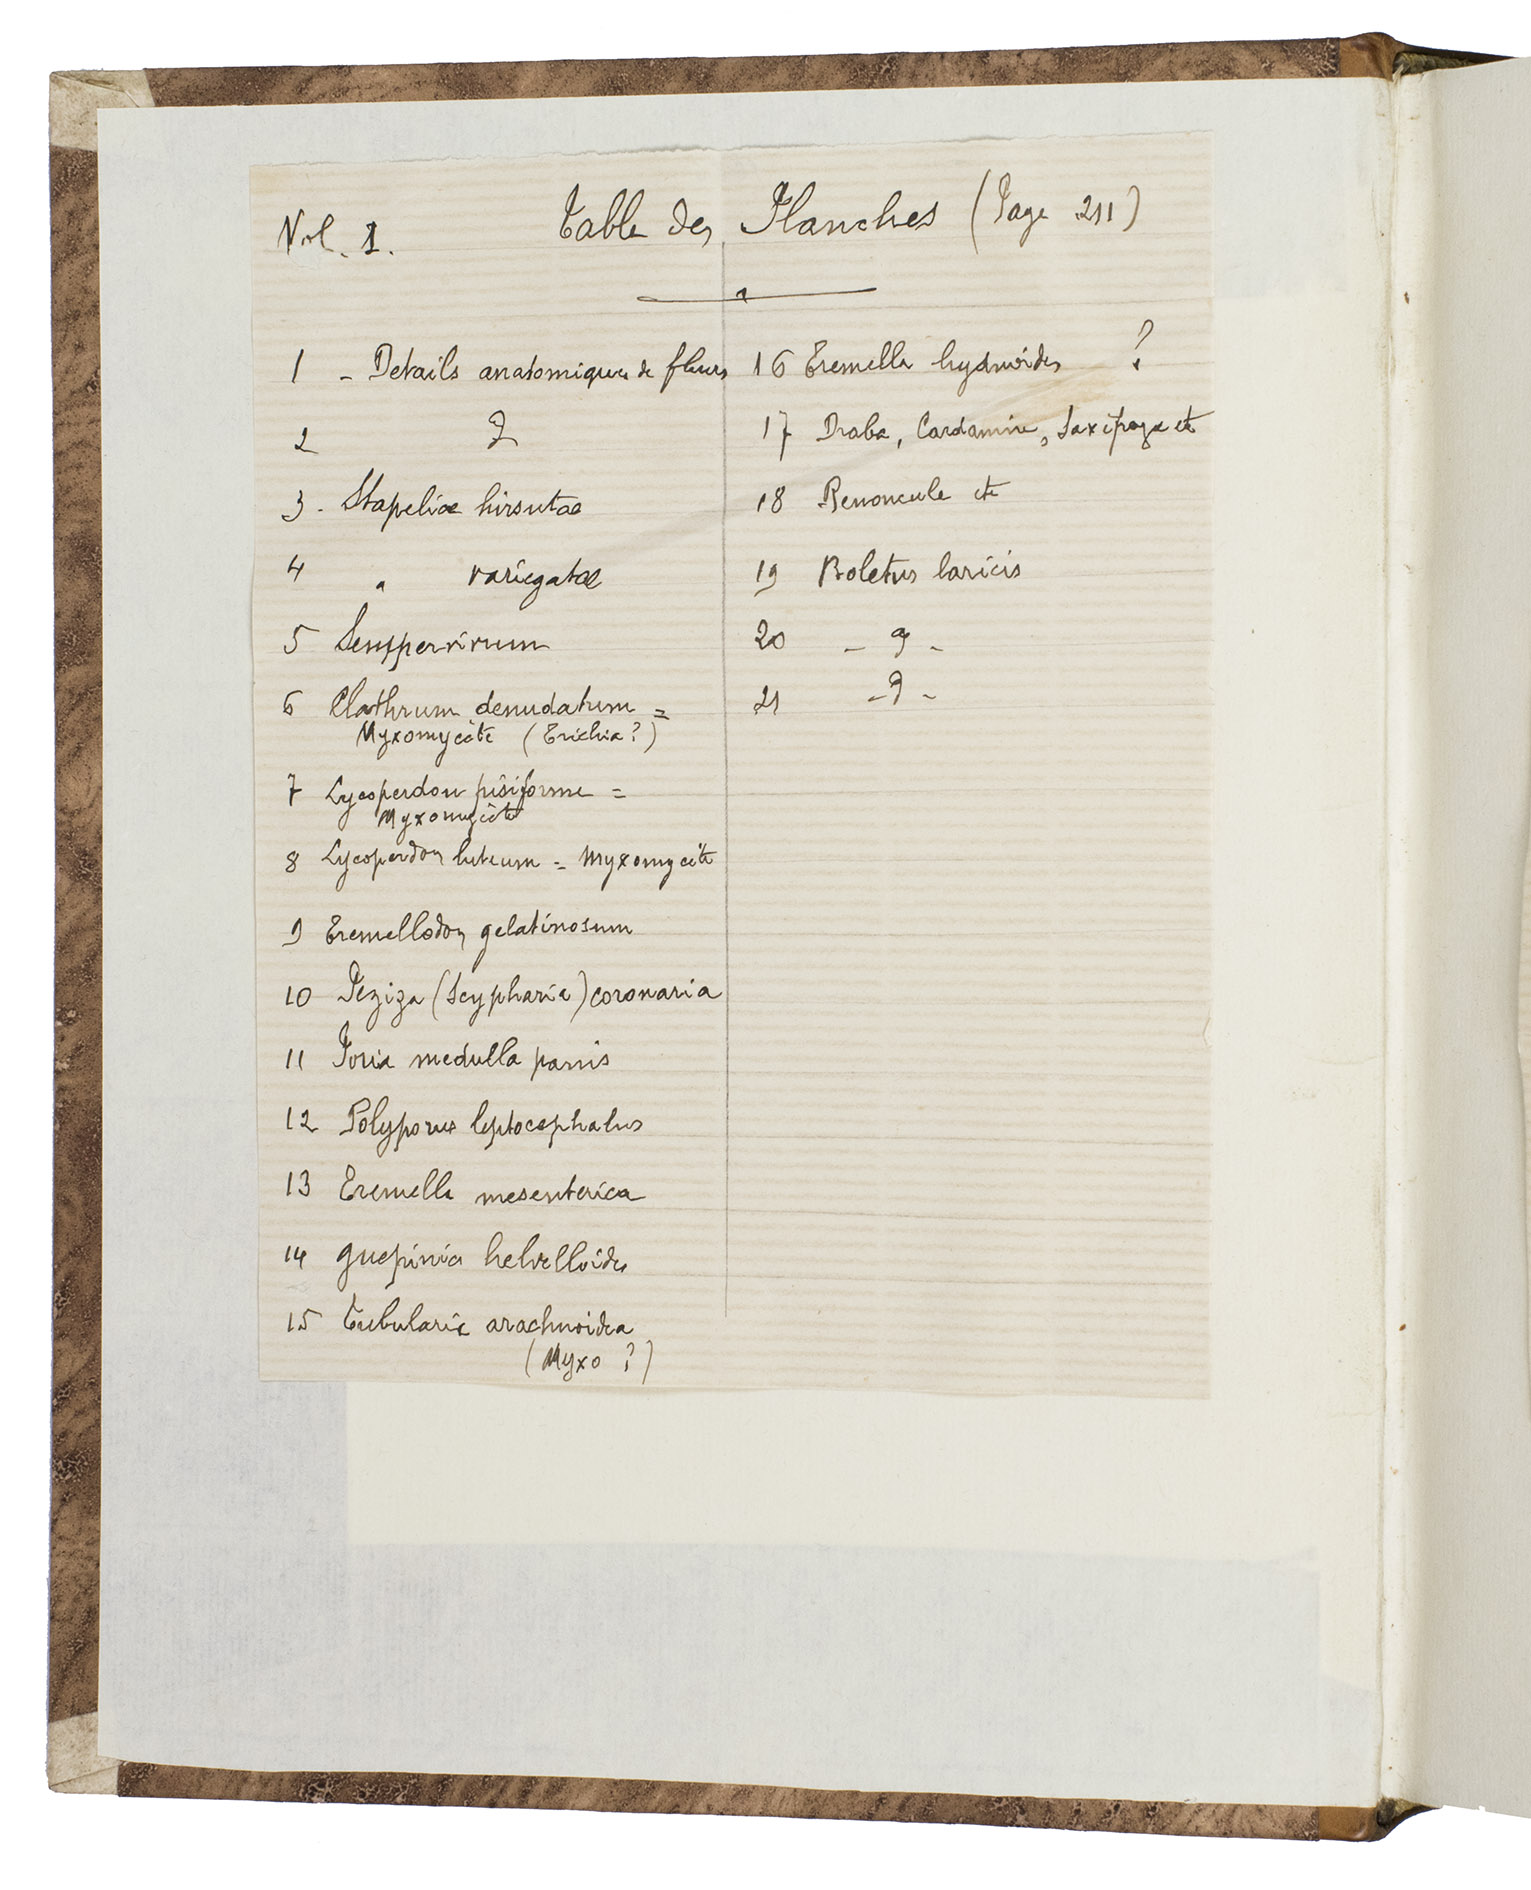 Vol. 1. Table des Planches (Page 211)
1 - Details anatomiques de fleurs
2 d°
3 - Stapeliae hirsutae
4 " variegatae
5 Sempervivum
6 Clathrum denudatum =
Myxomycète (Trichia ?)
7 Lycoperdon pisiforme =
Myxomycète
8 Lycoperdon luteum = Myxomycète
9 Tremellodon gelatinosum
10 Peziza (Scypharia) coronaria
11 Poria medulla panis
12 Polyporus leptocephalus
13 Tremella mesenterica
14 Guepinia helvelloides
15 Tubularia arachnoidea
(Myxo ?)
16 Tremella hydnoides ?
17 Draba, Cardamine, Saxifraga etc
18 Renoncule etc
19 Boletus laricis
20 - d° -
21 - d° -